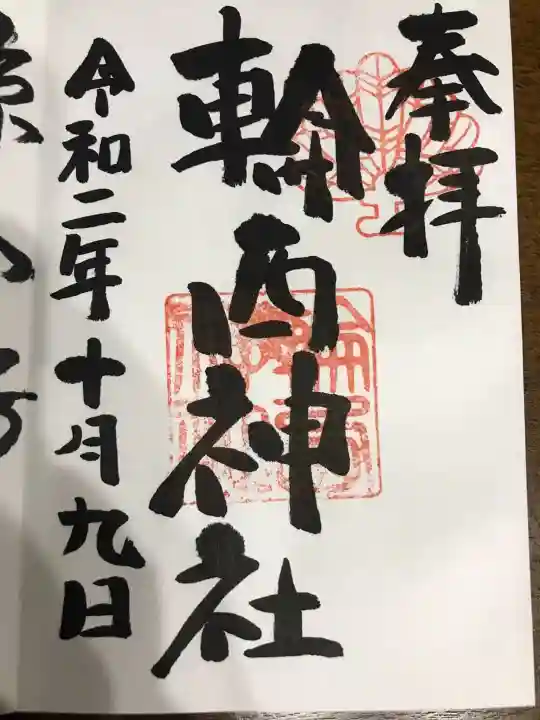 奉拝
輪西神社
令和二年十月九日